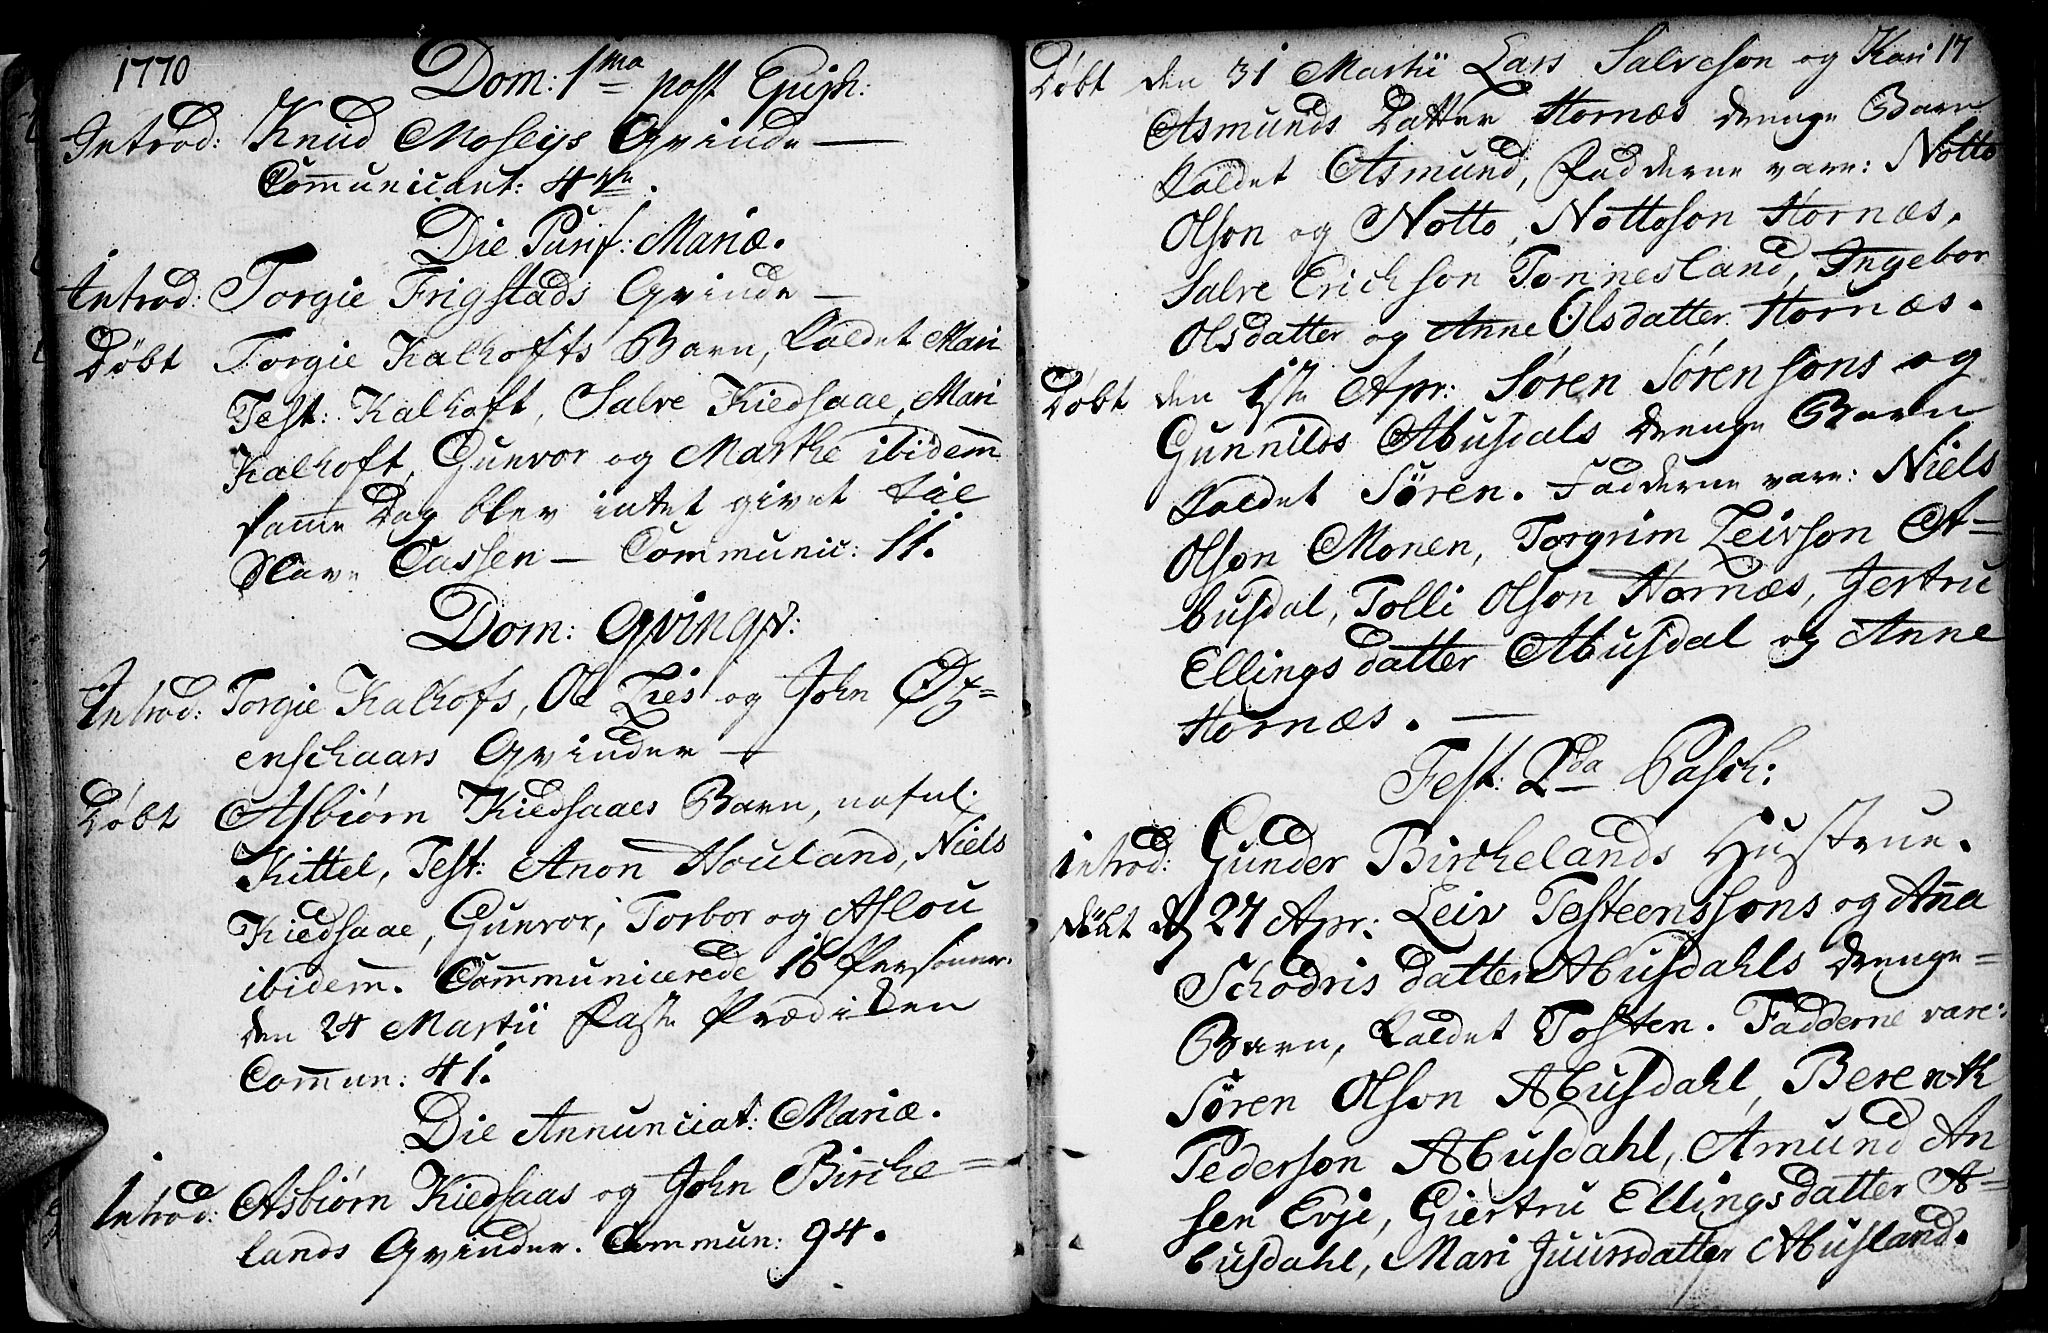 1770
Dom: 1ma post Epiph:
Introd: Knud Mosbys Qvinde —
Communicant: 4re.
Die Purif: Mariæ.
Introd: Torgie Frigstads Qvinde —
Døbt Torgie Kalhofts Barn, kaldet Mari
Test: Kalhoft, Salve Kiedsaae, Mari
Kalhoft, Gunvor og Marthe ibidem
samme Dag blev intet givet til
Slave Cassen — Communic: 11.
Dom: Qvinqv:
Introd: Torgie Kalhofs, Ole Lies og John Øx=
enschaars Qvinder —
Døbt Asbiørn Kiedsaaes Barn, nafnl.
Kittel, Test: Anon Houland, Niels
Kiedsaae, Gunvor, Torbor og Aslou
ibidem. Communicerede 16 Personer.
den 24 Martii Faste Prædiken
Commun: 41.
Die Annunciat: Mariæ.
Introd: Asbiørn Kiedsaas og John Birche=
lands Qvinder. Commun: 94.
17
Døbt den 31 Martii Lars Salveson og Kari
Asmunds Datter Hornæs drenge Barn
kaldet Asmund, Fadderne vare: Notto
Olson og Notto Nottoson Hornæs,
Salve Erichson Tonnesland, Ingebor
Olsdatter og Anne Olsdatter Hornæs.
Døbt den 1ste Apr: Søren Sørensons og
Gunnilds Abusdals drenge Barn
kaldet Søren. Fadderne vare: Niels
Olson Monen, Torgrim Leivson A=
busdal, Tolli Olson Hornæs, Jertru
Ellingsdatter Abusdal og Anne
Hornæs. —
Fest: 2da Pasch:
introd: Gunder Birchelands Hustrue.
døbt d. 27 Apr: Leiv Testeenssons og Anna
Schodrisdatter Abusdahls drenge=
Barn, kaldet Tosten. Fadderne vare:
Søren Olson Abusdahl, Berenth
Pederson Abusdahl, Amund An
sen Evje, Giertru Ellingsdatter A=
busdahl, Mari Juursdatter Abusland.